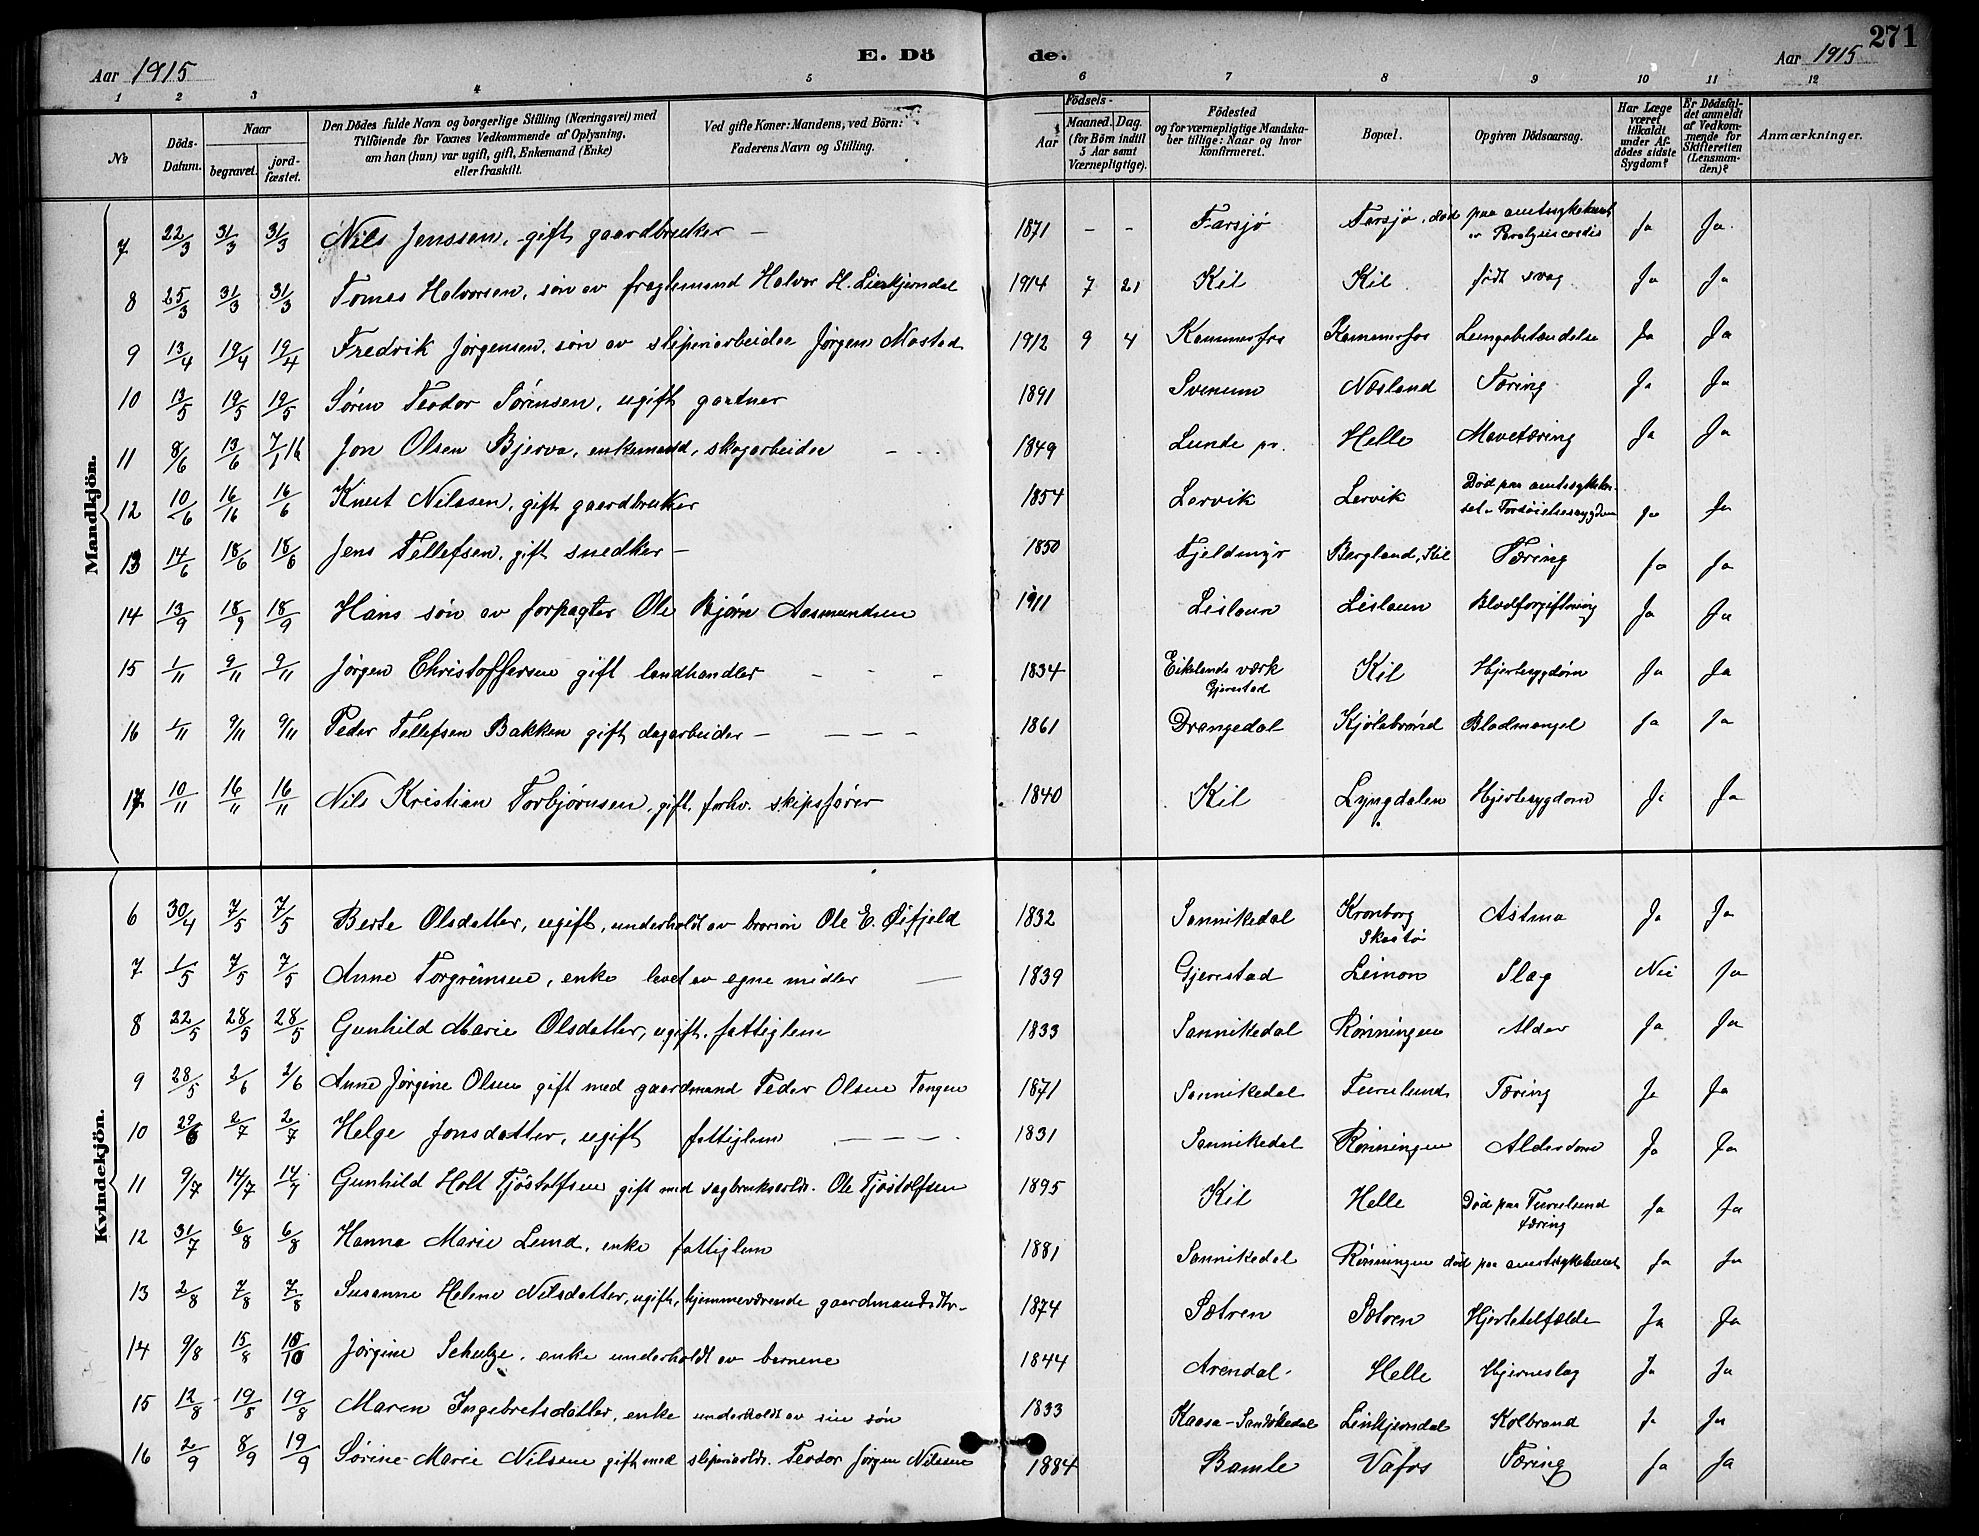 271
E. Dö de.
Aar 1915 Aar 1915
1 2 3 4 5 6 7 8 9 10 11 12
№ Döds-Datum. Naar begravet. jord-fæstet. Den Dödes fulde Navn og borgerlige Stilling (Næringsvei) med Tilföiende for Voxnes Vedkommende af Oplysning, om han (hun) var ugift, gift, Enkemand (Enke) eller fraskilt. Ved gifte Koner: Mandens, ved Börn: Faderens Navn og Stilling. Födsels-Aar Maaned. Dag. (for Börn indtil 5 Aar samt Værnepligtige). Födested og for værnepligtige Mandskaber tillige: Naar og hvor konfirmeret. Bopæl. Opgiven Dödsaarsag. Har Læge været tilkaldt under Afdödes sidste Sygdom? Er Dödsfaldet anmeldt af Vedkommende for Skifteretten (Lensmanden)? Anmærkninger.
Mandkjön.
7 22/3 31/3 31/3 Nils Jenssen, gift gaardbruker — 1871 - - Farsjø Farsjø, død paa amtssykehuset av Paralysis cordis Ja Ja.
8 25/3 31/3 31/3 Tomas Halvorsen, søn av Halvor H. Lienkjerndal 1914 7 21 Kil Kil født svag Ja Ja
9 13/4 19/4 19/4 Fredrik Jørgensen, søn av sliperiarbeider Jørgen Mostad 1912 9 4 Kammerfos Kammerfos Lungebetændelse Ja Ja
10 13/5 19/5 19/5 Søren Teodor Sørensen, ugift gartner 1891 Svenum Næsland Tæring Ja Ja
11 8/6 13/6 7/1 16 Jon Olsen Bjerva, enkemand, skogarbeider - - - 1849 Lunde pr. Helle Mavetæring Ja Ja
12 10/6 16/16 16/6 Knut Nilssen, gift gaardbruker 1854 Lervik Lervik Død paa amtssykehuset Ja Ja
13 14/6 18/6 18/6 Jens Tellefsen, gift snedker — 1850 Fjeldmyr Bergland, Kil Tæring Ja Ja
14 13/9 18/9 18/9 Hans søn av forpagter Ole Bjørn Aasmundsen 1911 Lislaun Lislaun Blodforgiftning Ja Ja
15 1/11 9/11 9/11 Jørgen Christoffersen gift landhandler - - - 1834 Eikelands værk Gjerestad Kil Hjertesygdom Ja Ja
16 1/11 9/11 9/11 Peder Tellefsen Bakken gift dagarbeider — — — — 1861 Drangedal Kjølebrønd Blodmangel Ja Ja
17 10/11 16/11 16/11 Nils Kristian Torbjørnsen, gift, forhv. skipsfører 1840 Kil Lyngdalen Hjertesygdom Ja Ja
Kvindekjön.
6 30/4 7/5 7/5 Berte Olsdatter, ugift, underholdt av brorsøn Ole E. Øifjeld 1832 Sannikedal Kronborg Skaatø Astma Ja Ja
7 1/5 7/5 7/5 Anne Torgrimsen, enke levet av egne midler — 1839 Gjerestad Leinon Slag Nei Ja
8 22/5 28/5 28/5 Gunhild Marie Olsdatter, ugift, fattiglem 1833 Sannikedal Rønningen Alder Ja Ja
9 28/5 2/6 2/6 Anne Jørgine Olsen gift med gaardmand Peder Olsen Tangen 1871 Sannikedal Furulund Tæring Ja Ja
10 29/6 2/7 2/7 Helge Jonsdatter, ugift fattiglem — — — . 1831 Sannikedal Rønningen Alderdom Ja Ja
11 9/7 14/7 14/7 Gunhild Holt Tjøstolfsen gift med sagbruksarb. Ole Tjøstolfsen 1895 Kil Helle Død paa Furulund tæring Ja Ja
12 31/7 6/8 6/8 Hanna Marie Lund, enke fattiglem 1881 Sannikedal Rønningen død paa amtssykehuset Ja Ja
13 2/8 7/8 7/8 Susanne Helene Nilsdatter, ugift, hjemmeværende gaardmandsdtr. 1874 Sætren Sætren Hjertetilfælde Ja Ja
14 9/8 15/8 10/10 Jørgine Schulze, enke underholdt av børnene 1844 Arendal Helle Hjerneslag Ja Ja
15 12/8 19/8 19/8 Maren Ingebretsdatter, enke underholdt av sin søn 1833 Kaasa-Sandøkedal Lienkjerndal Kolbrand Ja Ja
16 2/9 8/9 19/9 Sørine Marie Nilssen gift med sliperiarb. Teodor Jørgen Nilssen 1884 Bamle Vafos Tæring Ja Ja